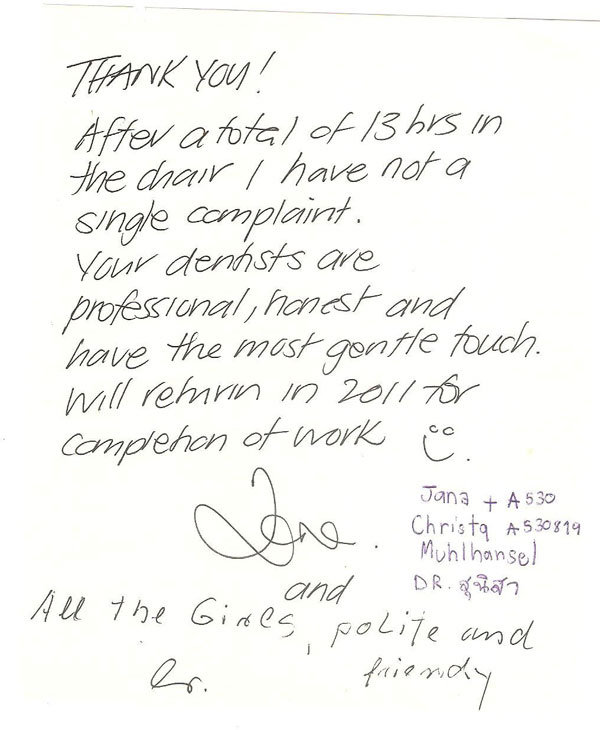 THANK YOU!
After a total of 13 hrs in
the chair I have not a
single complaint.
Your dentists are
professional, honest and
have the most gentle touch.
Will return in 2011 for
completion of work
Jana + A530
Christa A530819
Muhlhansel
DR. สุนิสา
and
All the Girls, polite and
friendly